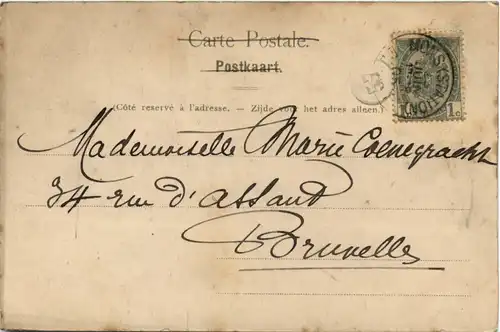 Carte Postale.
Postkaart.
(Côté reservé à l'adresse. — Zijde voor het adres alleen.)
MONS (STATION)
1c
Mademoiselle Marie Coenegracht
34 rue d'assaut
Bruxelles